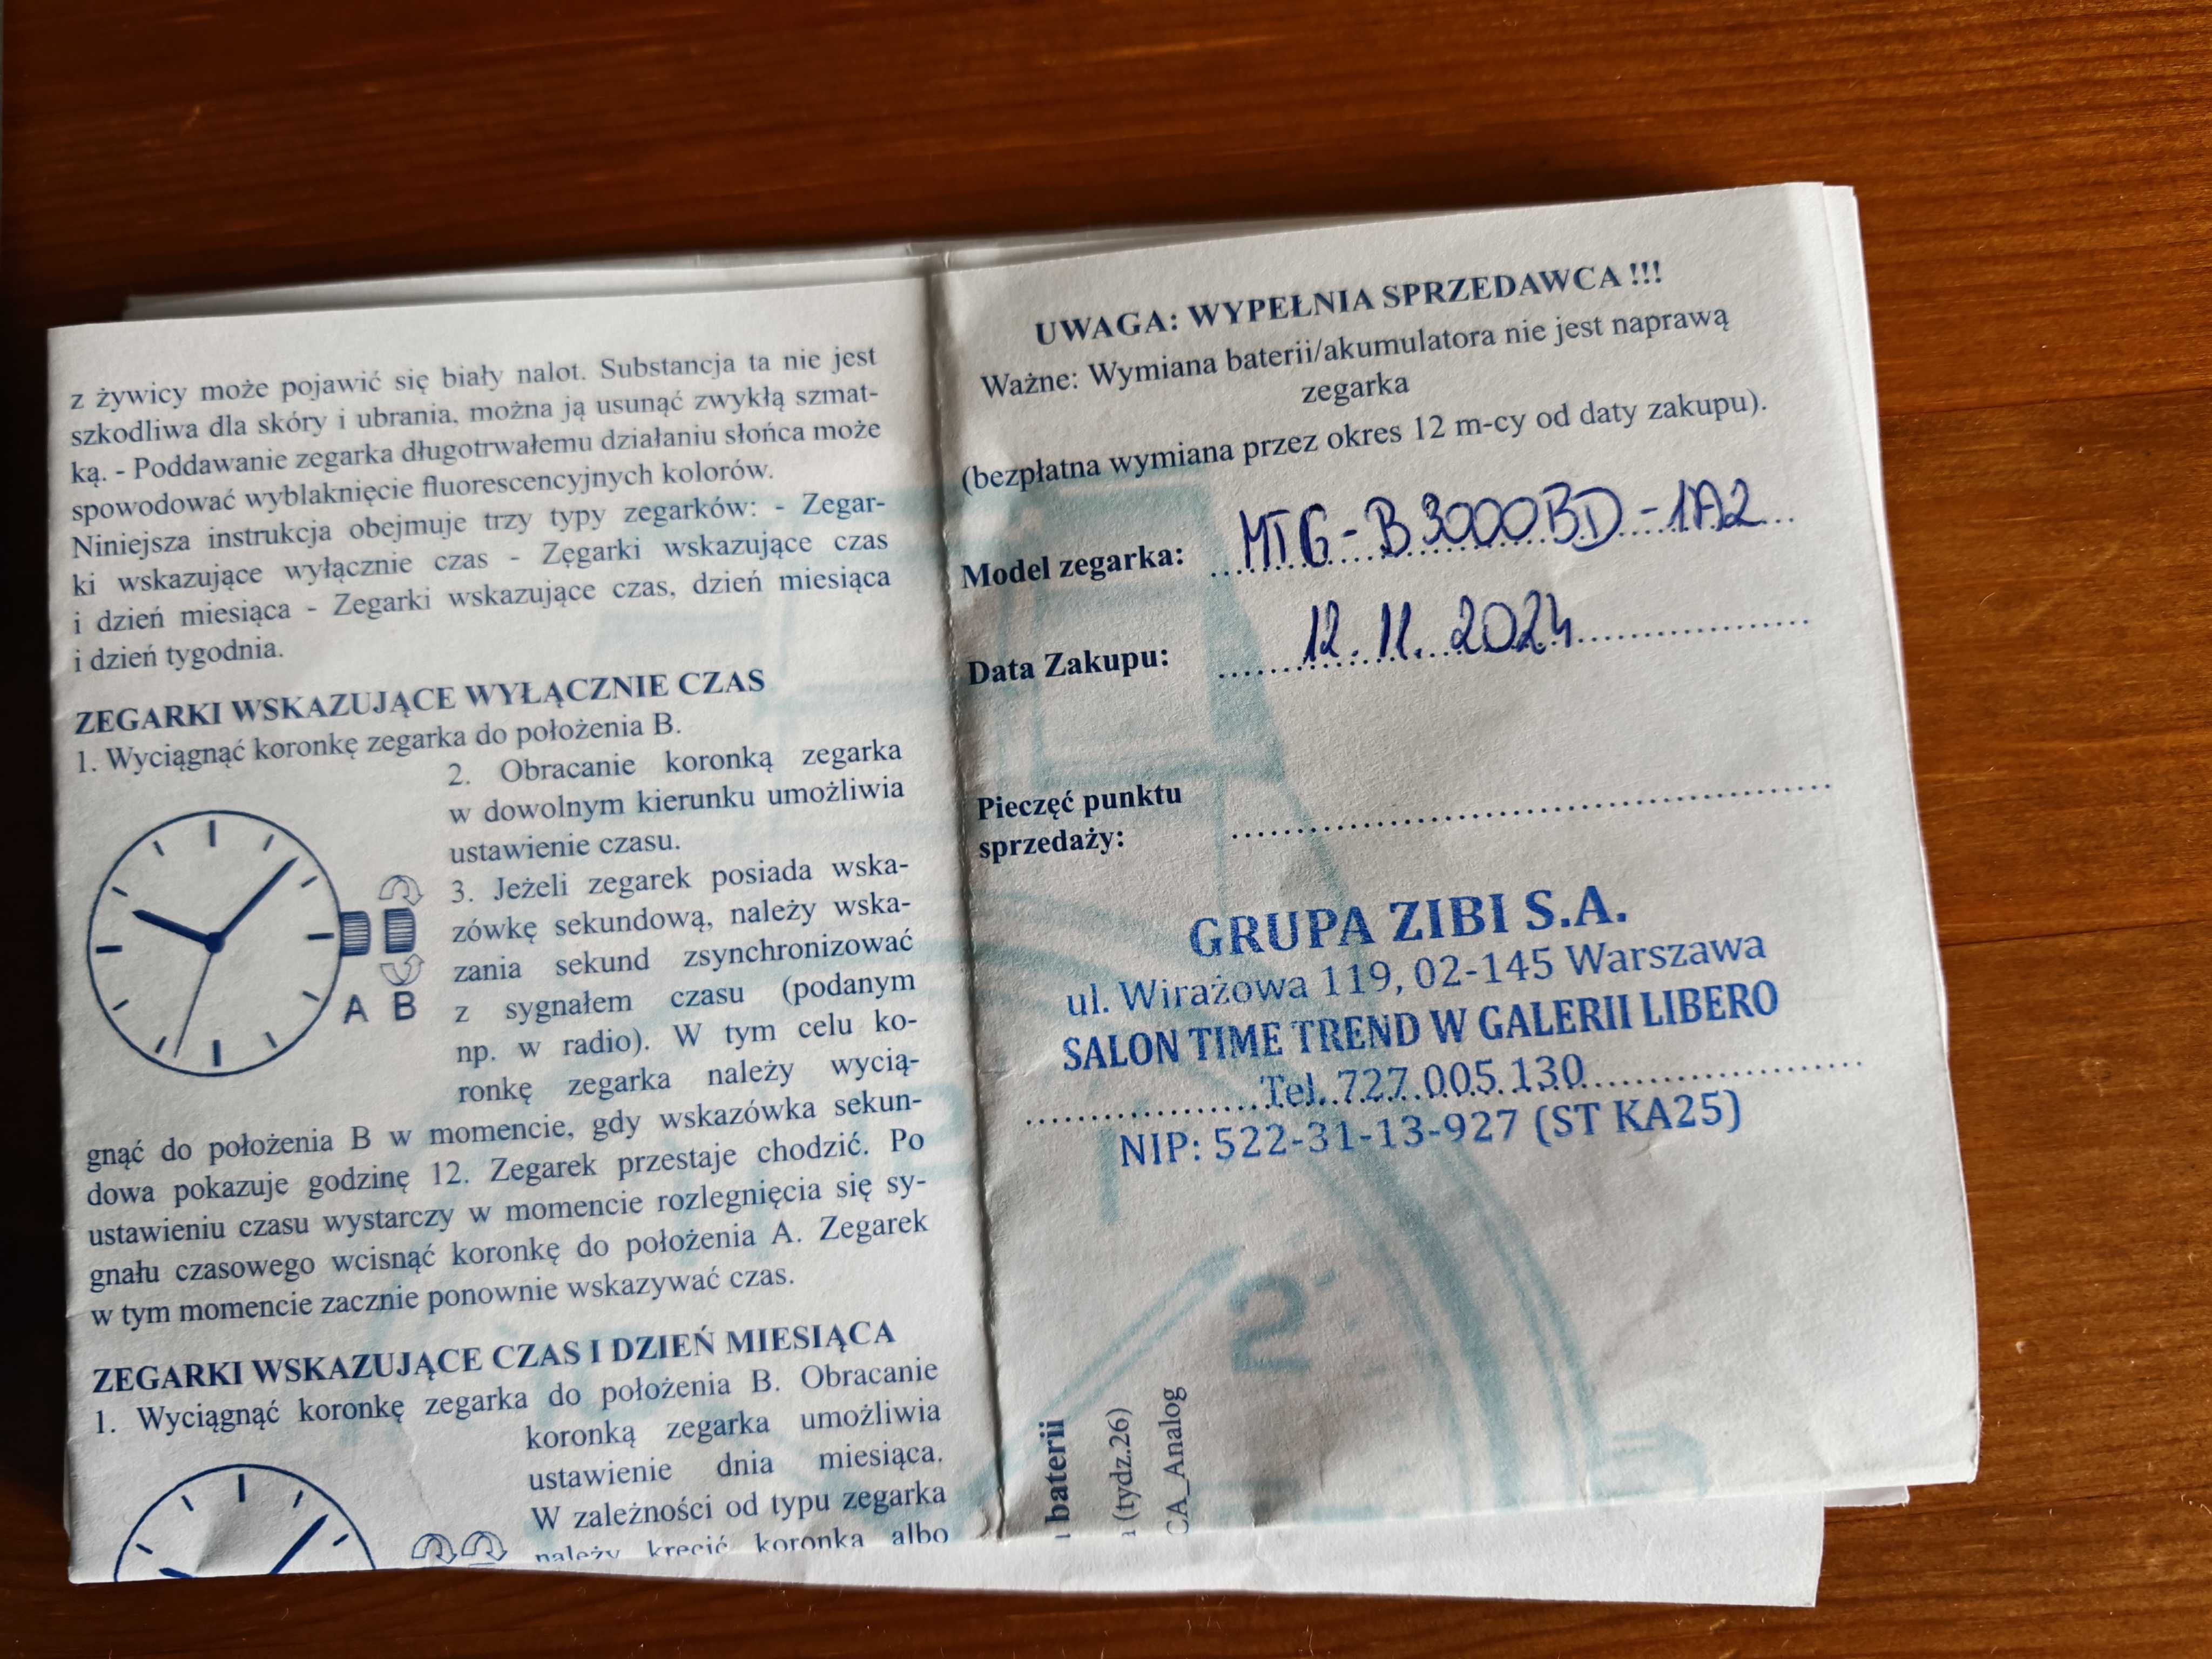 z żywicy może pojawić się biały nalot. Substancja ta nie jest
szkodliwa dla skóry i ubrania, można ją usunąć zwykłą szmat-
ką. - Poddawanie zegarka długotrwałemu działaniu słońca może
spowodować wyblaknięcie fluorescencyjnych kolorów.
Niniejsza instrukcja obejmuje trzy typy zegarków: - Zegar-
ki wskazujące wyłącznie czas - Zęgarki wskazujące czas
i dzień miesiąca - Zegarki wskazujące czas, dzień miesiąca
i dzień tygodnia.
ZEGARKI WSKAZUJĄCE WYŁĄCZNIE CZAS
1. Wyciągnąć koronkę zegarka do położenia B.
2. Obracanie koronką zegarka
w dowolnym kierunku umożliwia
ustawienie czasu.
3. Jeżeli zegarek posiada wska-
zówkę sekundową, należy wska-
zania sekund zsynchronizować
z sygnałem czasu (podanym
np. w radio). W tym celu ko-
ronkę zegarka należy wycią-
A B
gnąć do położenia B w momencie, gdy wskazówka sekun-
dowa pokazuje godzinę 12. Zegarek przestaje chodzić. Po
ustawieniu czasu wystarczy w momencie rozlegnięcia się sy-
gnału czasowego wcisnąć koronkę do położenia A. Zegarek
w tym momencie zacznie ponownie wskazywać czas.
ZEGARKI WSKAZUJĄCE CZAS I DZIEŃ MIESIĄCA
1. Wyciągnąć koronkę zegarka do położenia B. Obracanie
koronką zegarka umożliwia
ustawienie dnia miesiąca.
W zależności od typu zegarka
należy kręcić koronką albo
UWAGA: WYPEŁNIA SPRZEDAWCA !!!
Ważne: Wymiana baterii/akumulatora nie jest naprawą
zegarka
(bezpłatna wymiana przez okres 12 m-cy od daty zakupu).
Model zegarka: MTG-B3000BD-1A2
Data Zakupu: 12.11.2024
Pieczęć punktu
sprzedaży:
GRUPA ZIBI S.A.
ul. Wirażowa 119, 02-145 Warszawa
SALON TIME TREND W GALERII LIBERO
Tel. 727 005 130
NIP: 522-31-13-927 (ST KA25)
2
baterii
(tydz.26)
CA_Analog